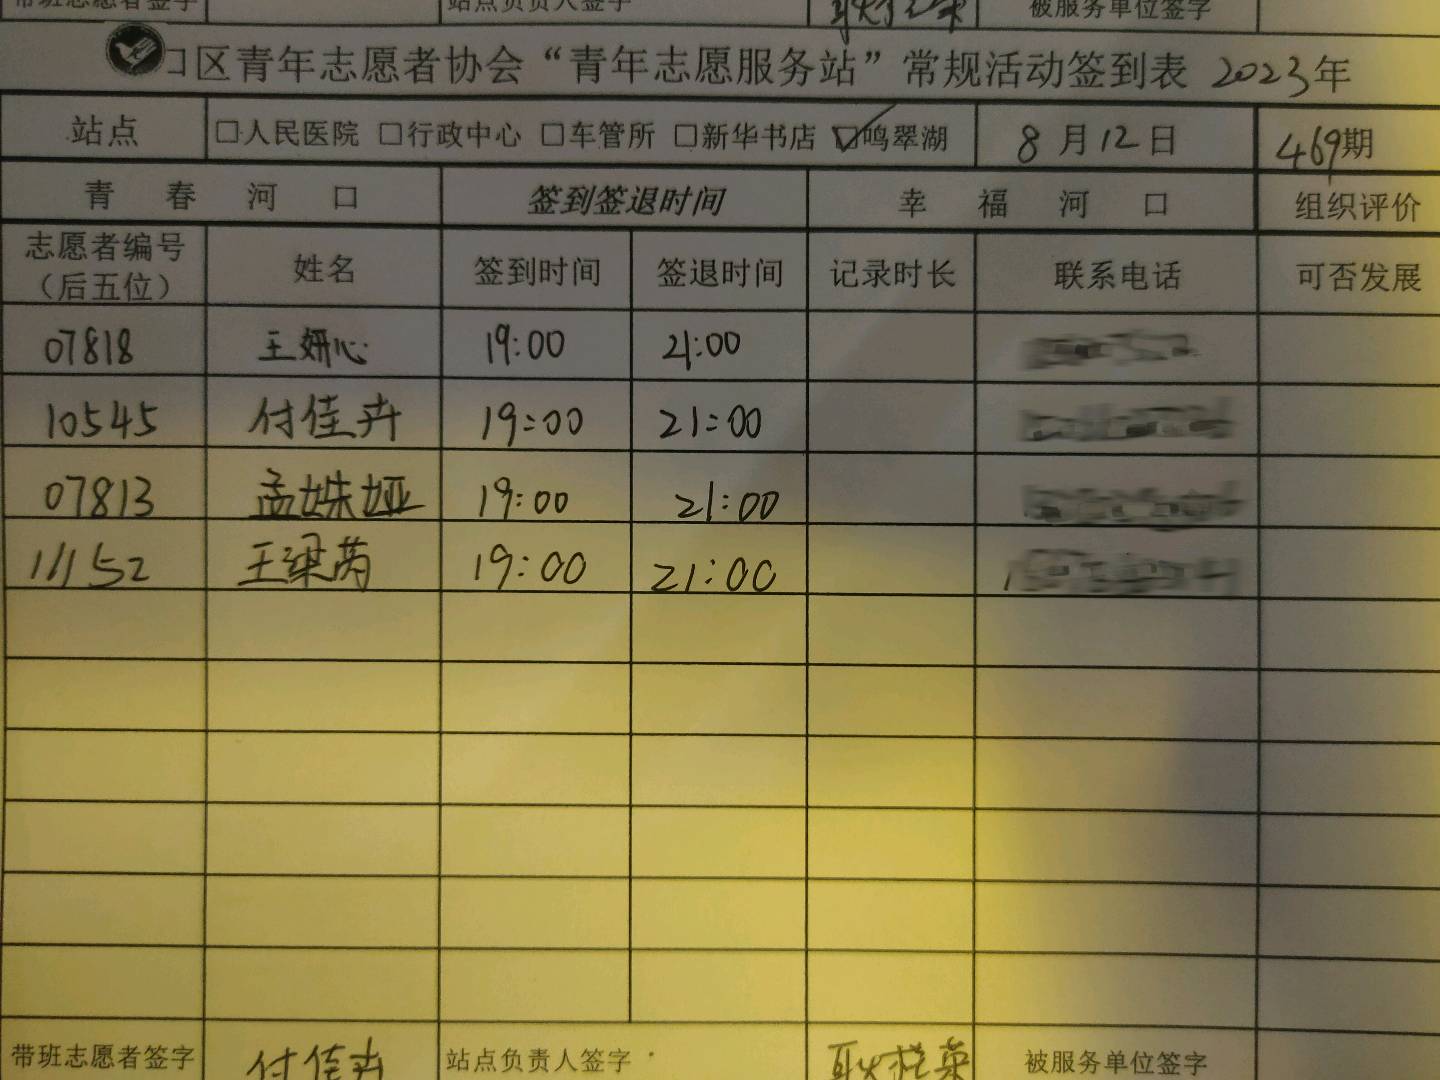 带班志愿者签字 站点负责人签字 被服务单位签字
口区青年志愿者协会“青年志愿服务站”常规活动签到表 2023年
站点 □人民医院 □行政中心 □车管所 □新华书店 ☑鸣翠湖 8月12日 469期
青春河口 签到签退时间 幸福河口 组织评价
志愿者编号 姓名 签到时间 签退时间 记录时长 联系电话 可否发展
（后五位）
07818 王妍心 19:00 21:00
10545 付佳卉 19:00 21:00
07813 孟姝娅 19:00 21:00
11152 王梁芮 19:00 21:00
带班志愿者签字 付佳卉 站点负责人签字 被服务单位签字